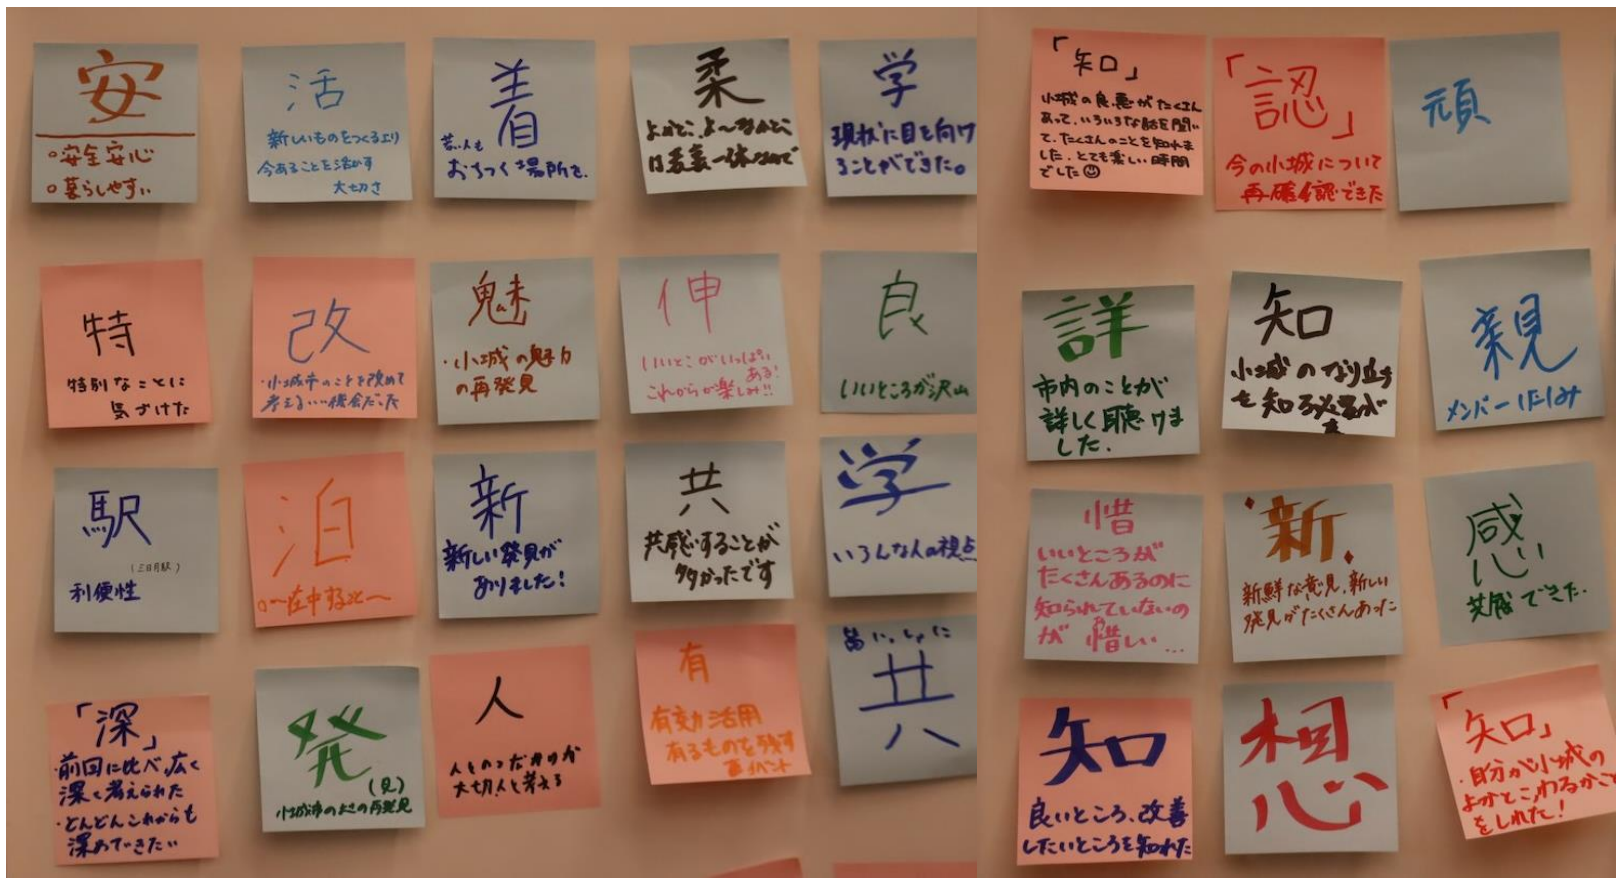 安
○安全安心
○暮らしやすい
活
新しいものをつくるより
今あることを活かす
大切さ
着
若い人も
おちつく場所を.
柔
よかとこ、よ〜なかとこ
は表裏一体なので
学
現状に目を向け
ることができた。
「知」
小城の良、悪がたくさん
あって、いろいろな話を聞い
て、たくさんのことを知れま
した。とても楽しい時間
でした☺
「認」
今の小城について
再確認できた
頑
特
特別なことに
気づけた
改
・小城市のことを改めて
考えるいい機会だった
魅
・小城の魅力
の再発見
伸
いいとこがいっぱい
ある!
これからが楽しみ!!
良
いいところが沢山
詳
市内のことが
詳しく聴けま
した.
知
小城のなり立ち
を知る必要が
親
メンバーにしたしみ
駅
(三日月駅)
利便性
泊
新
新しい発見が
ありました!
共
共感することが
多かったです
学
いろんな人の視点
惜
いいところが
たくさんあるのに
知られていないの
が惜しい…
新
新鮮な意見、新しい
発見がたくさんあった
感
共感できた.
「深」
・前回に比べ、広く
深く考えられた
・どんどんこれからも
深めていきたい
発
(見)
小城市の良さの再発見
人
人とのつながりが
大切だと考える
有
有効活用
有るものを残す
皆いっしょに
共
知
良いところ、改善
したいところを知れた
想
「知」
・自分が小城の
よかとこ、わるかとこ
をしれた!